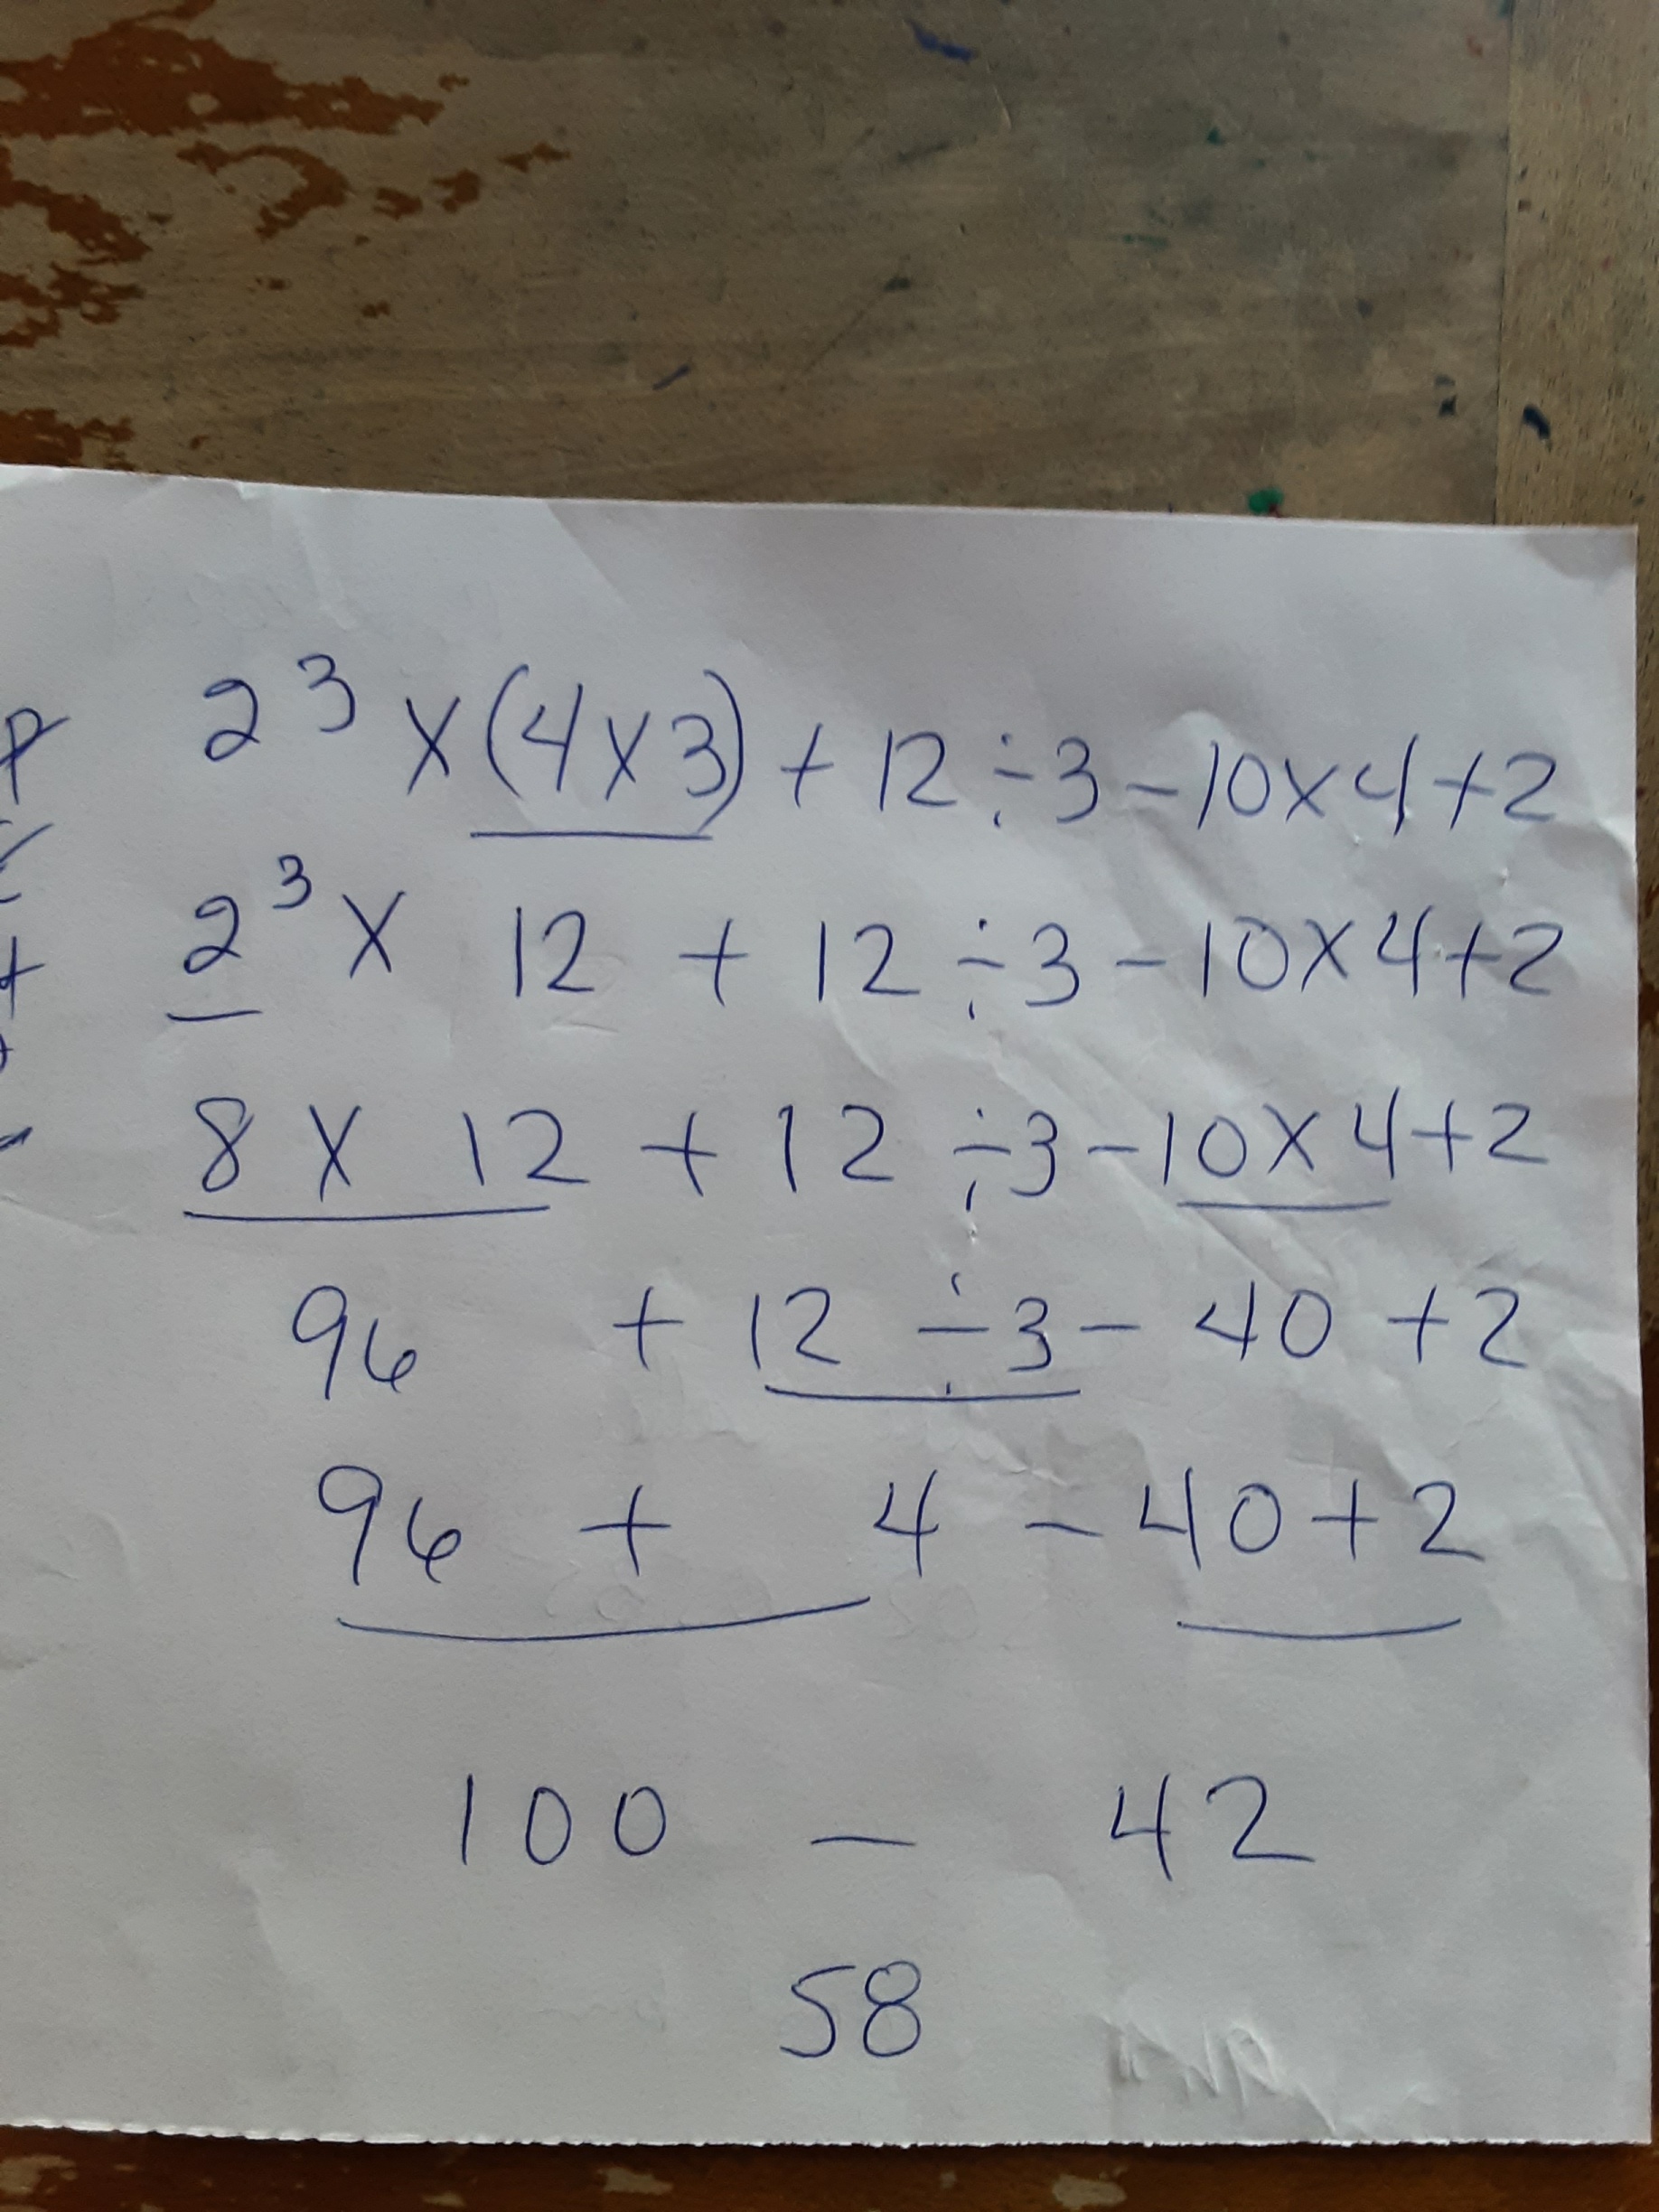 2³ x (4 x 3) + 12 ÷ 3 - 10 x 4 + 2
2³ x 12 + 12 ÷ 3 - 10 x 4 + 2
8 x 12 + 12 ÷ 3 - 10 x 4 + 2
96 + 12 ÷ 3 - 40 + 2
96 + 4 - 40 + 2
100 - 42
58